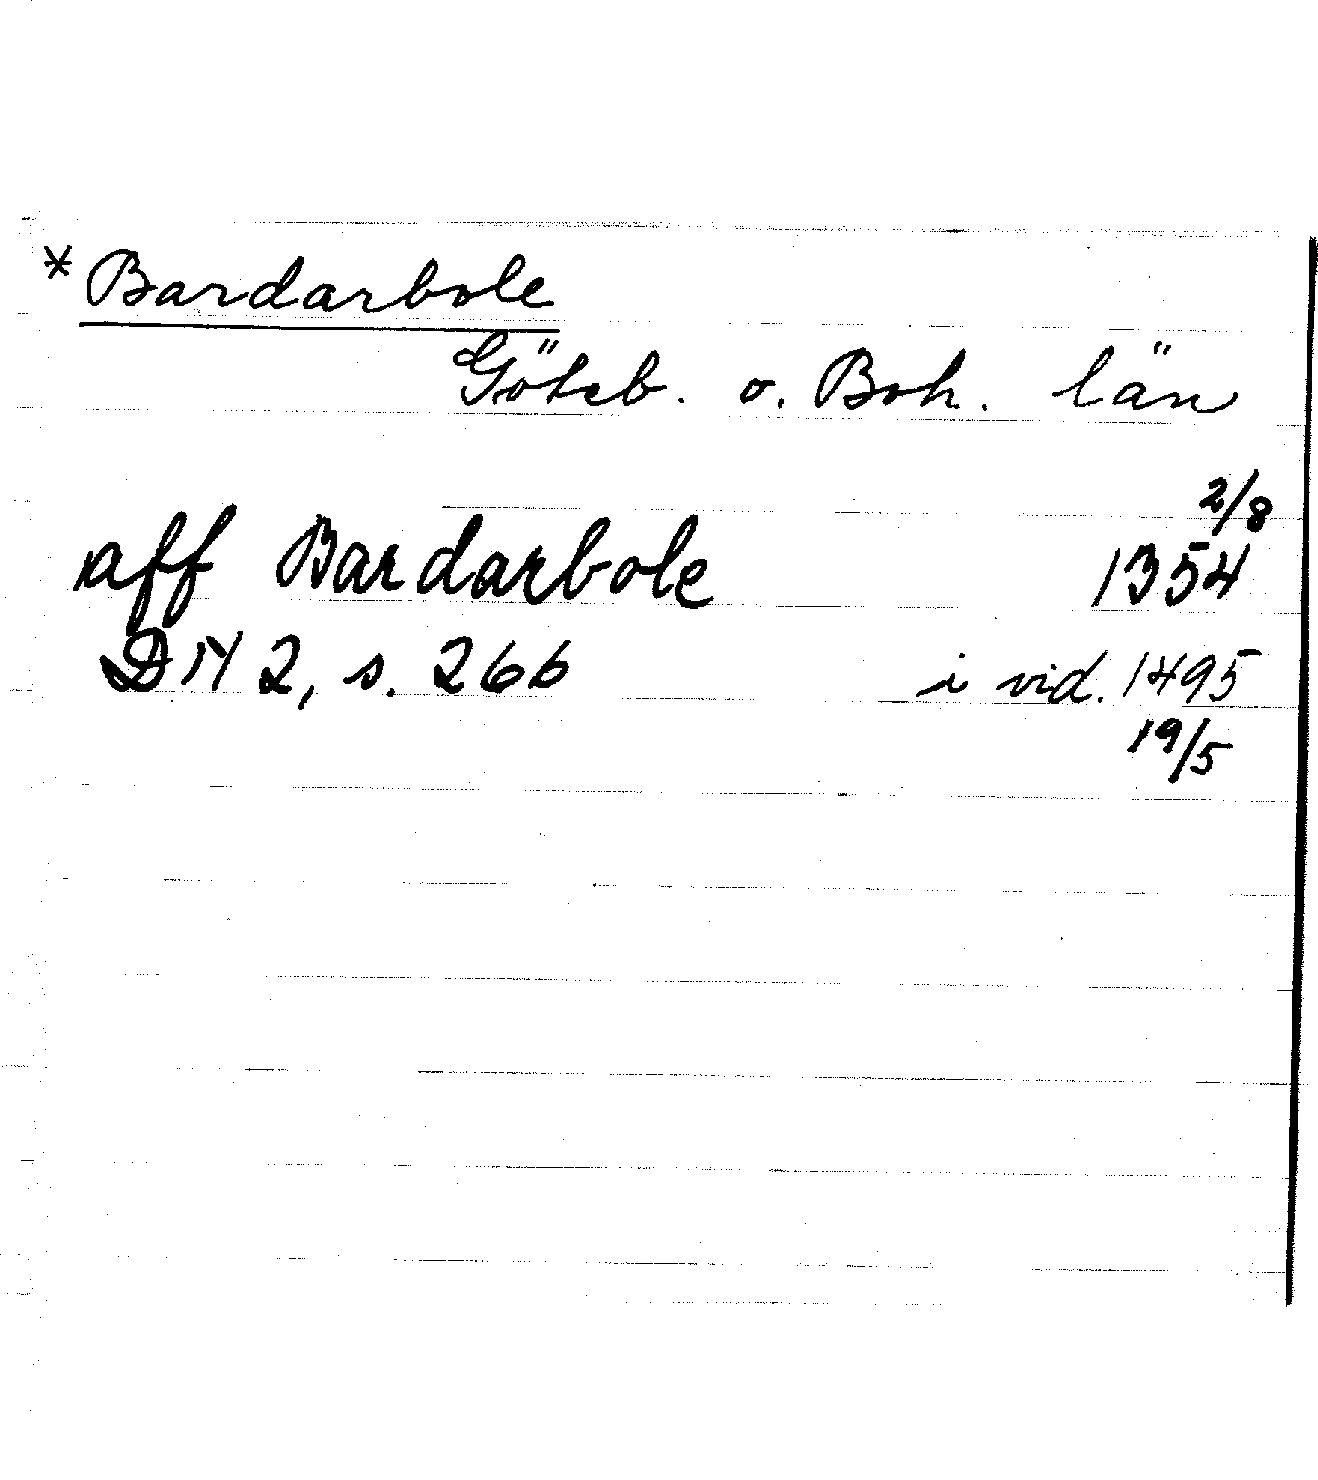 *Bardarbole
Göteb. o. Boh. län
2/8
aff Bardarbole 1354
DN 2, s. 266 i vid. 1495
19/5